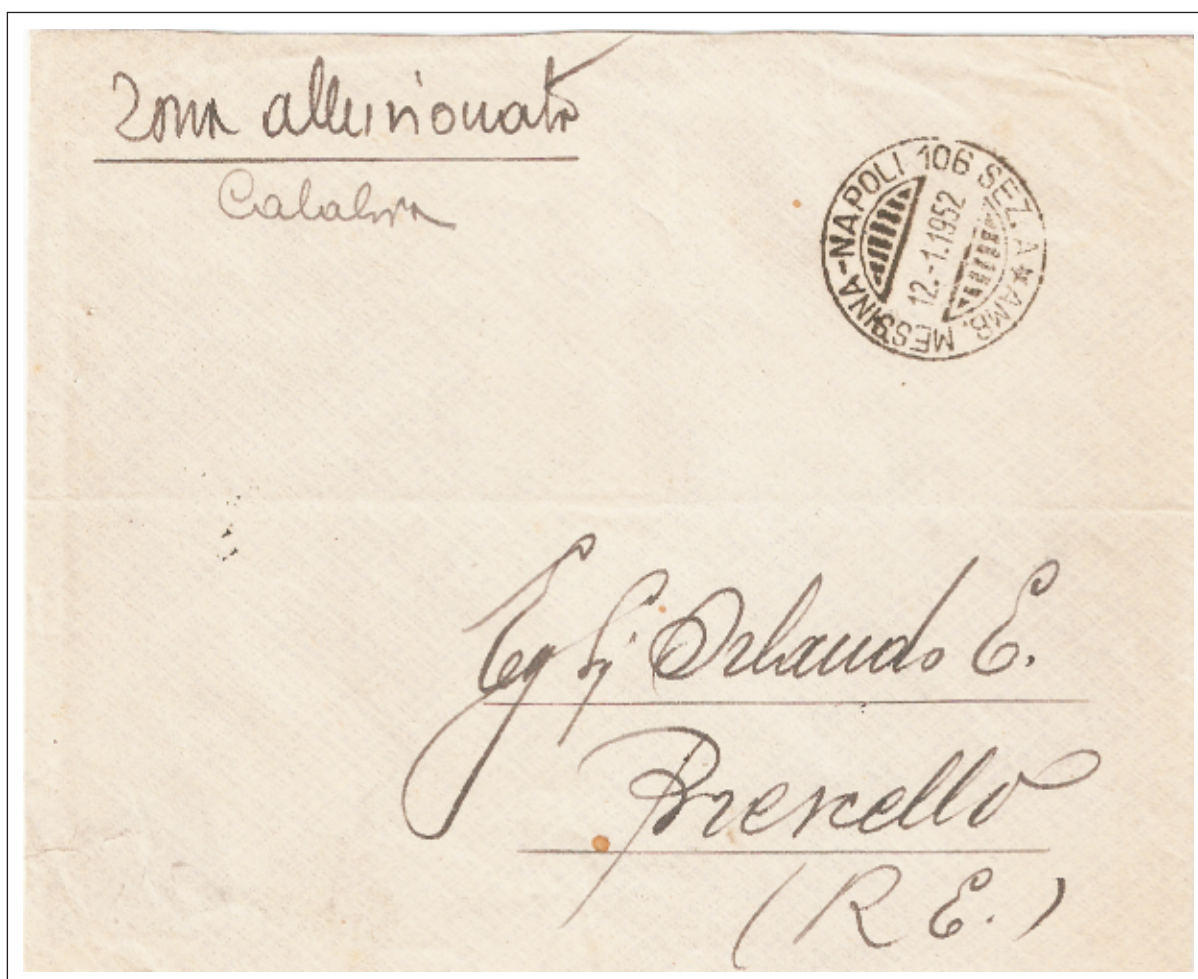 Zona alluvionata
Calabria
AMB. MESSINA-NAPOLI 106 SEZ. A *
12.-1.1952
Eg Sig Orlando E.
Brescello
(R E.)